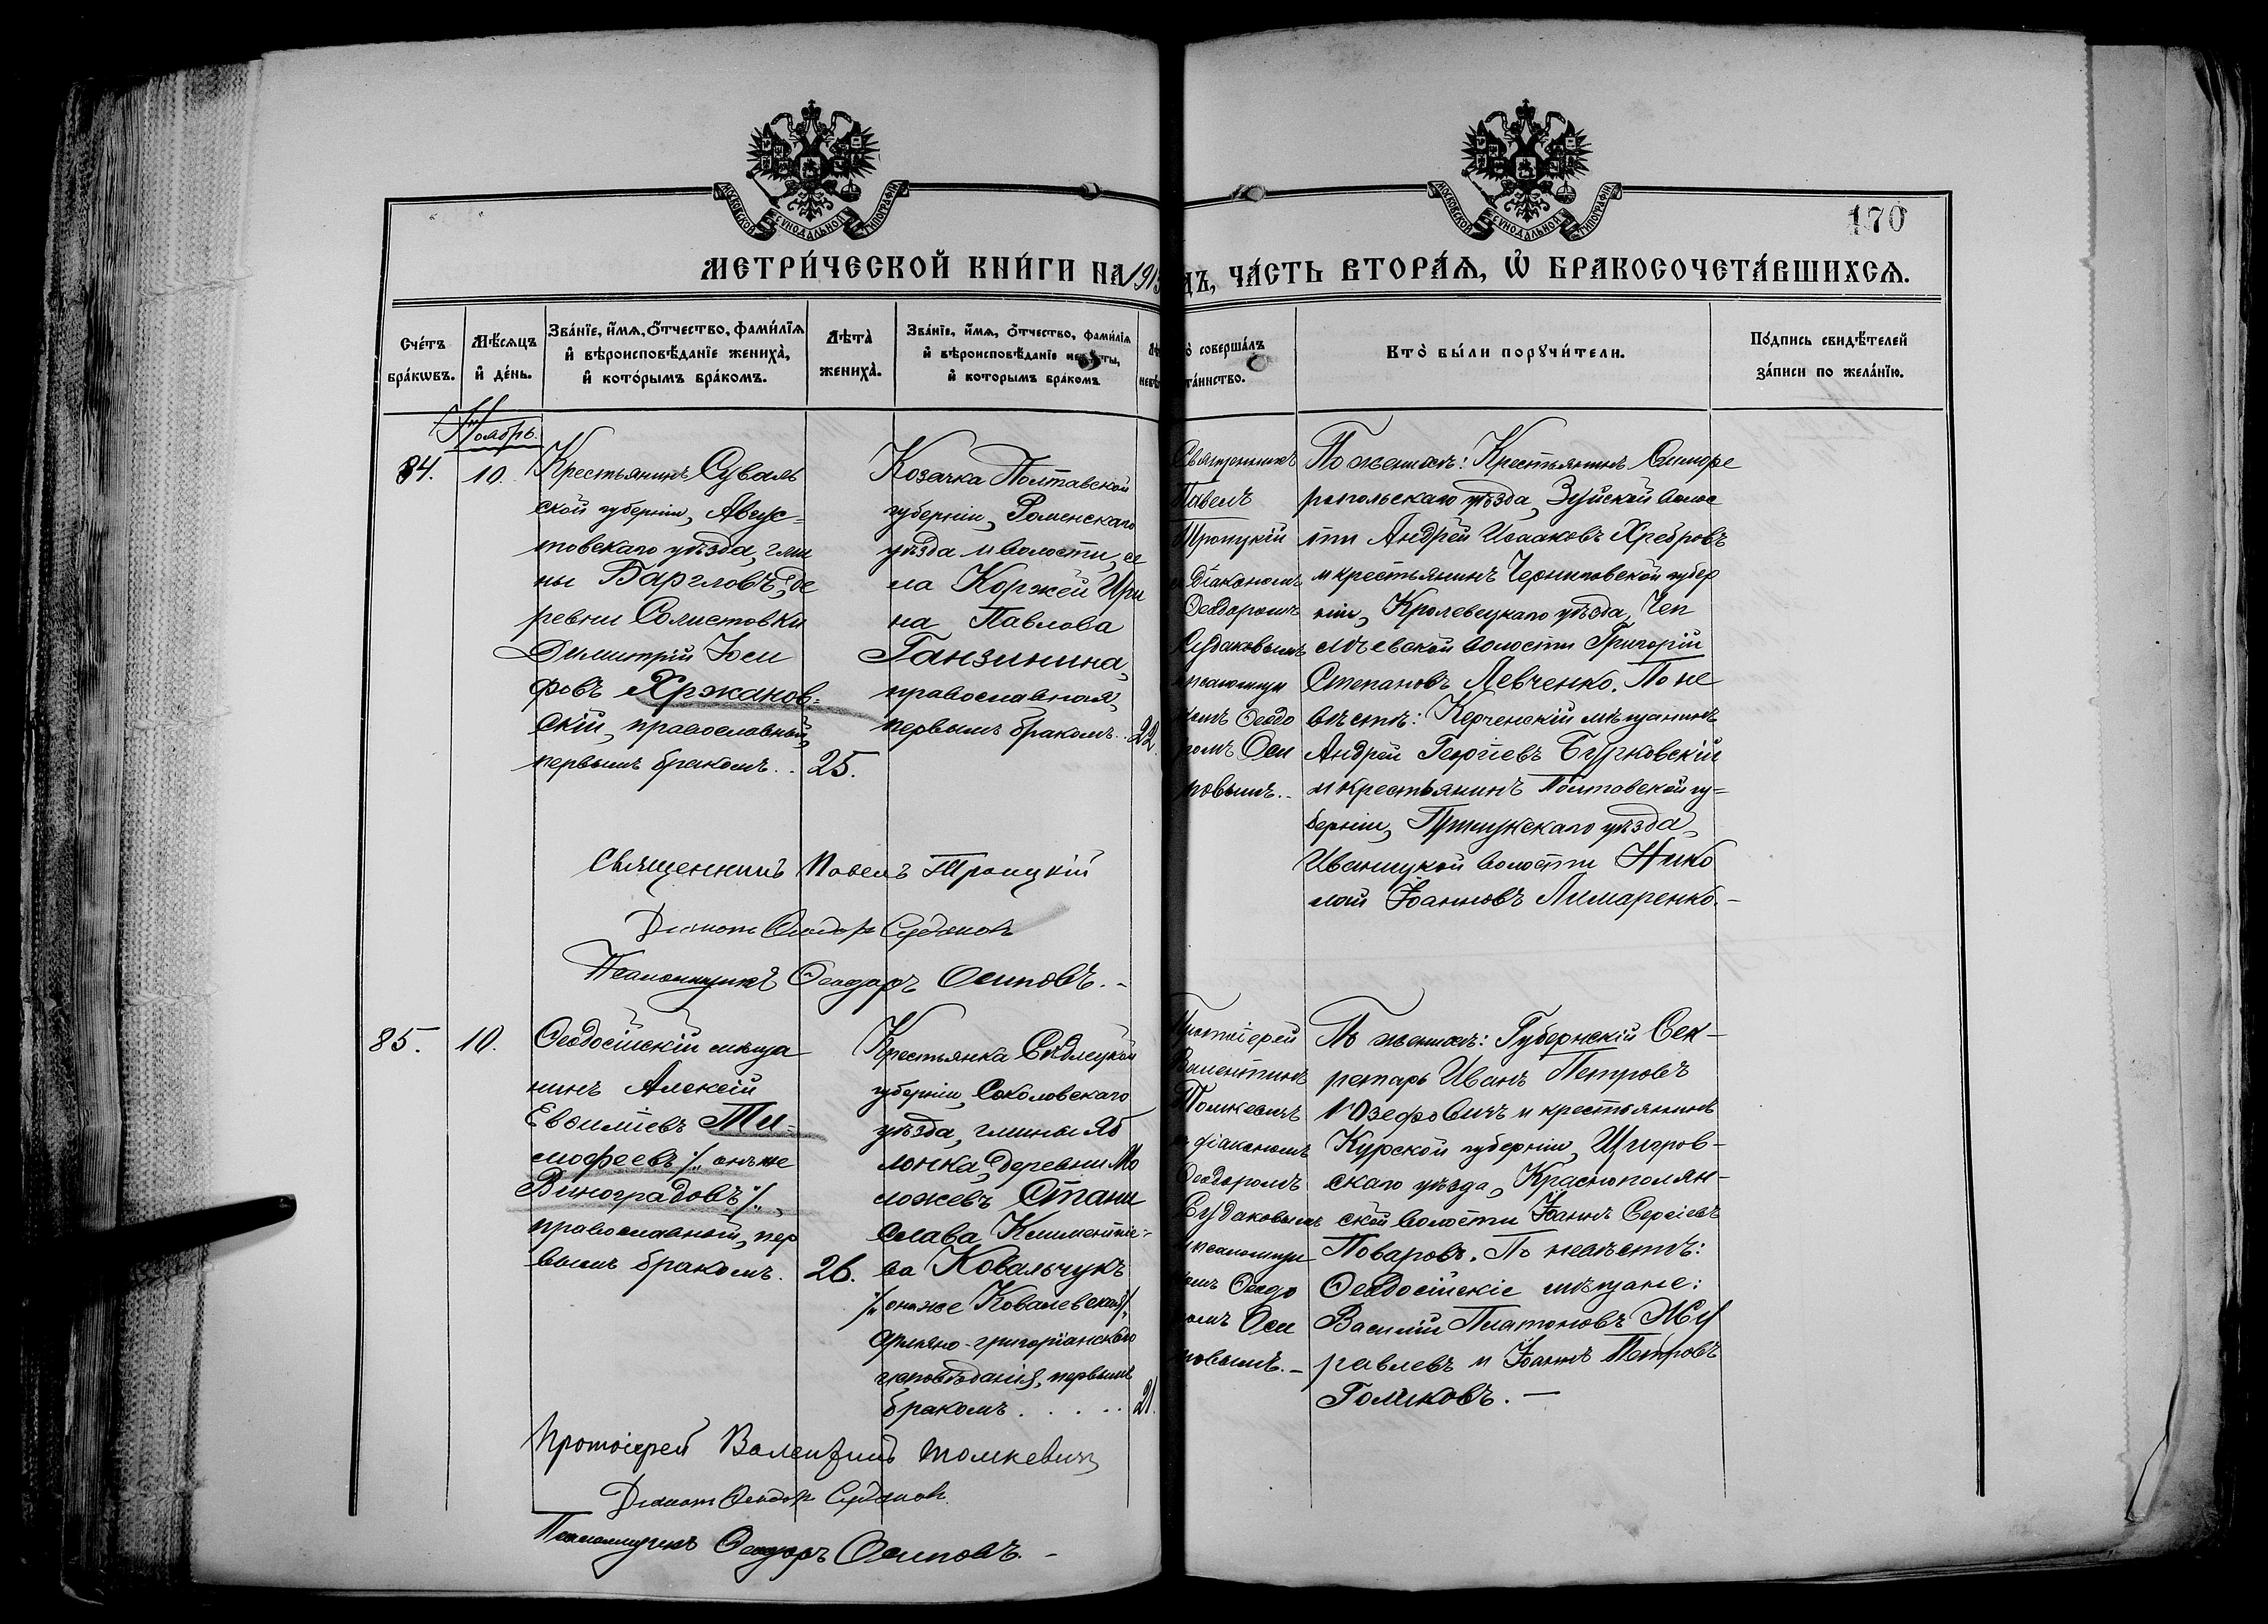 МОСКОВСКОЙ СѴНОДАЛЬНОЙ ТИПОГРАФІИ
МОСКОВСКОЙ СѴНОДАЛЬНОЙ ТИПОГРАФІИ
170
МЕТРИ́ЧЕСКОЙ КНИ́ГИ НА 1913
ДЪ, ЧА́СТЬ ВТОРА́Ѧ, Ѽ БРАКОСОЧЕТА́ВШИХСѦ.
Сче́тъ
бра́кѡвъ.
Мѣ́сѧцъ
и҆ де́нь.
Зва́нїе, и҆́мѧ, ѻ҆́тчество, фами́лїѧ
и҆ вѣроисповѣ́данїе жениха̀,
и҆ кото́рымъ бра́комъ.
Лѣта̀
жениха̀.
Зва́нїе, и҆́мѧ, ѻ҆́тчество, фами́лїѧ
и҆ вѣроисповѣ́данїе не ты,
и҆ которымъ бракомъ
о̀ соверша́лъ
та́инство.
Кто̀ бы́ли порꙋчи́тели.
По́дпись свидѣ́телей
за́писи по жела́нїю.
Ноябрь.
84.
10.
Крестьянинъ Суваль
ской губерніи, Авгус=
товскаго уѣзда, гми
ны Баргловъ, де
ревни Солистовки
Димитрій Іоси
фовъ Хржанов=
скій, православный,
первымъ бракомъ..
25.
Козачка Полтавской
губерніи, Роменскаго
уѣзда и волости, се
ла Коржей Ири
на Павлова
Ганзинина,
православная,
первымъ бракомъ..
22.
Священникъ
Павелъ
Троицкій
съ діакономъ
Ѳеодоромъ
Судаковымъ
и псаломщи
комъ Ѳеодо
ромъ Оси
повымъ..
По женихѣ: Крестьянинъ Симфе
ропольскаго уѣзда, Зуйской волос
ти Андрей Исааковъ Хребровъ
и крестьянинъ Черниговской губер
ніи, Кролевецкаго уѣзда, Чеп
лѣевской волости Григорій
Степановъ Левченко. По не
вѣстѣ: Керченскій мѣщанинъ
Андрей Георгіевъ Бурчковскій
и крестьянинъ Полтавской гу=
берніи, уѣзда,
Иваницкой волости Нико
лай Іоанновъ Лимаренко.-
Священникъ Павелъ Троицкій
Діаконъ Ѳеодоръ Судаковъ
Псаломщикъ Ѳеодоръ Осиповъ.-
85.
10.
Ѳеодосійскій мѣща
нинъ Алексій
Евѳиміевъ Ти=
мофеевъ /. онъ же
Виноградовъ /.,
православный, пер
вымъ бракомъ.
26.
Крестьянка Сѣдлецкой
губерніи, Соколовскаго
уѣзда, гмины Яб
лонка, деревни Мо
ложевъ Стани
слава Климентіе=
ва Ковальчукъ
/. она же Ковалевская /.,
армяно-григоріанскаго
исповѣданія, первымъ
бракомъ.....
21.
Протоіерей
Валентинъ
Томкевичъ
съ діакономъ
Ѳеодоромъ
Судаковымъ
и псаломщи
комъ Ѳеодо
ромъ Оси
повымъ.-
По женихѣ: Губернскій Сек-
ретарь Иванъ Петровъ
Юзефовичъ и крестьянинъ
Курской губерніи, Щигров-
скаго уѣзда, Краснополян-
ской волости Іоаннъ Сергіевъ
Поваровъ. По невѣстѣ:
Ѳеодосійскіе мѣщане:
Василій Платоновъ Жу
равлевъ и Іоаннъ Петровъ
Голиковъ.-
Протоіерей Валентинъ Томкевичъ
Діаконъ Ѳеодоръ Судаковъ
Псаломщикъ Ѳеодоръ Осиповъ.-